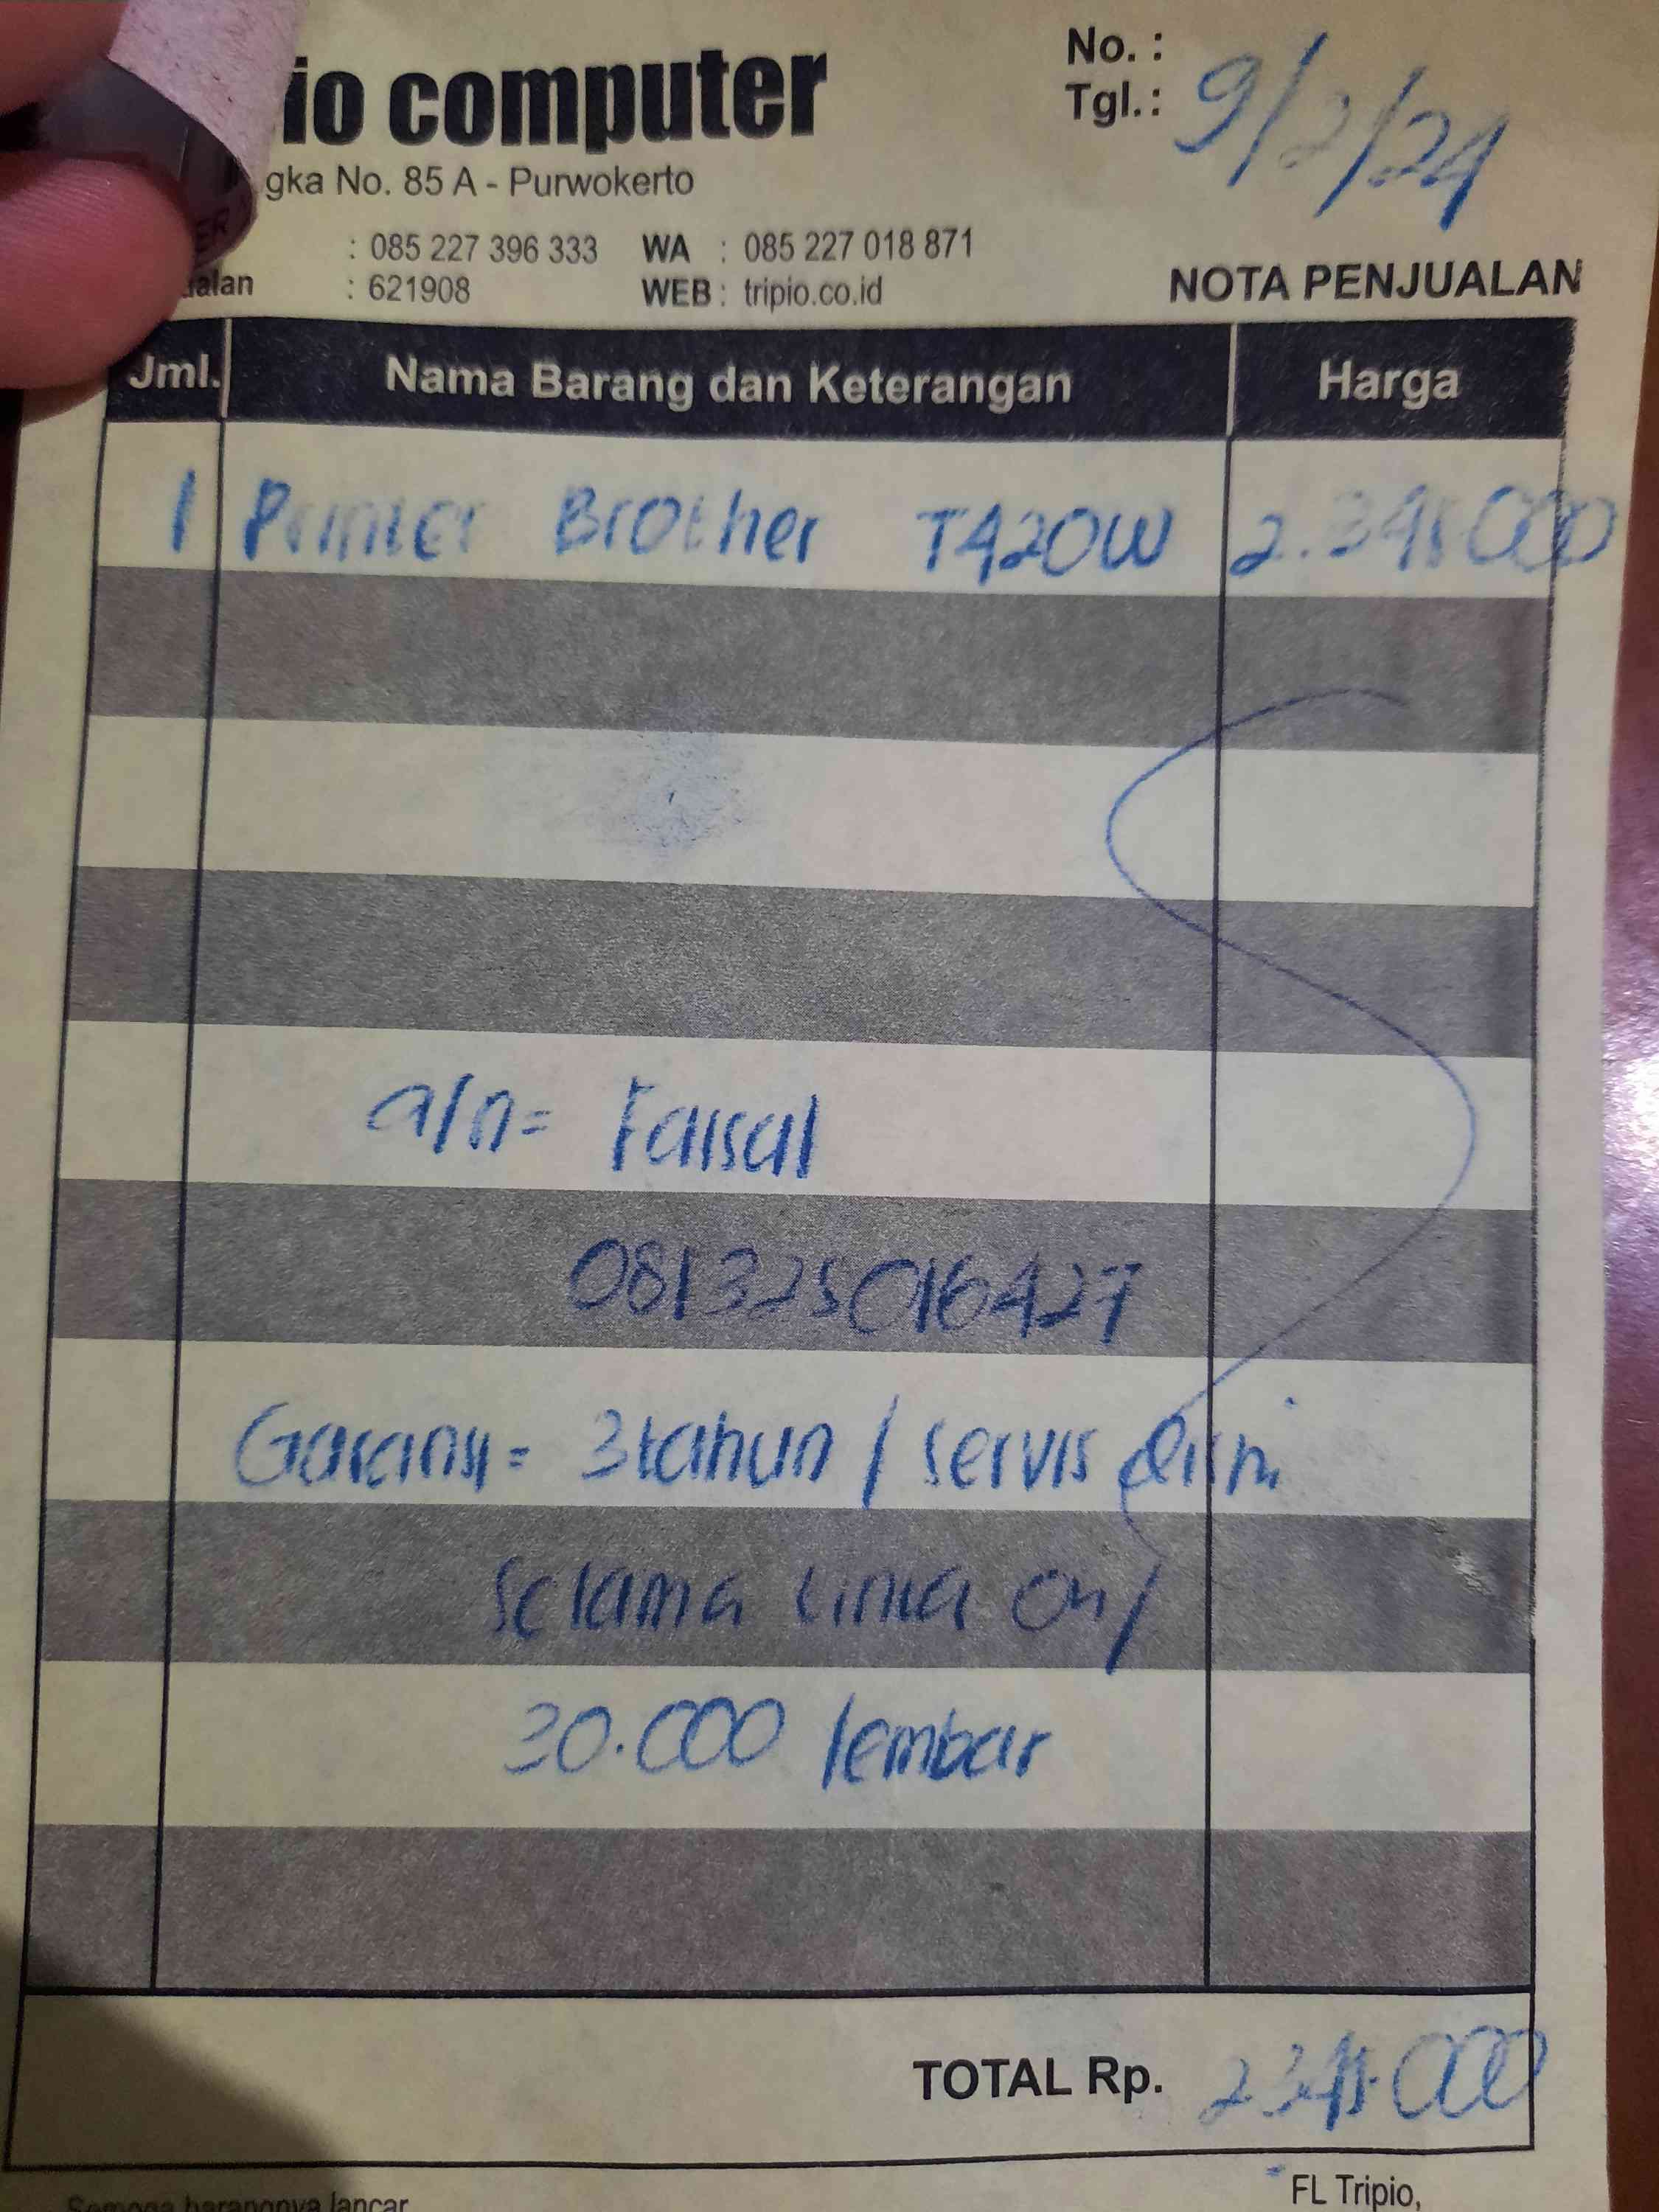 io computer
No. :
Tgl. : 9/2/24
gka No. 85 A - Purwokerto
: 085 227 396 333 WA : 085 227 018 871
alan : 621908 WEB : tripio.co.id
NOTA PENJUALAN
Jml. Nama Barang dan Keterangan Harga
1 Printer Brother T420W 2.345.000
a/n = Faisal
081325016427
Garansi = 3 tahun / servis disini
Selama
30.000 lembar
TOTAL Rp. 2345.000
Semoga barangnya lancar
FL Tripio,